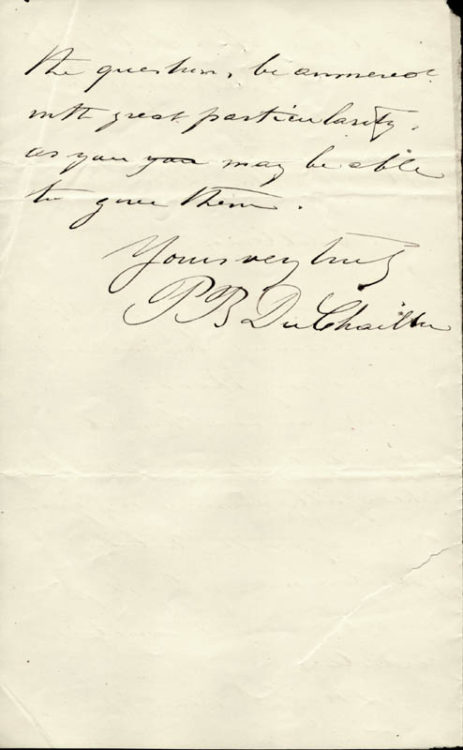 the questions, be answered
with great particularity,
as you you may be able
to give them.
Yours very truly
P B Du Chaillu